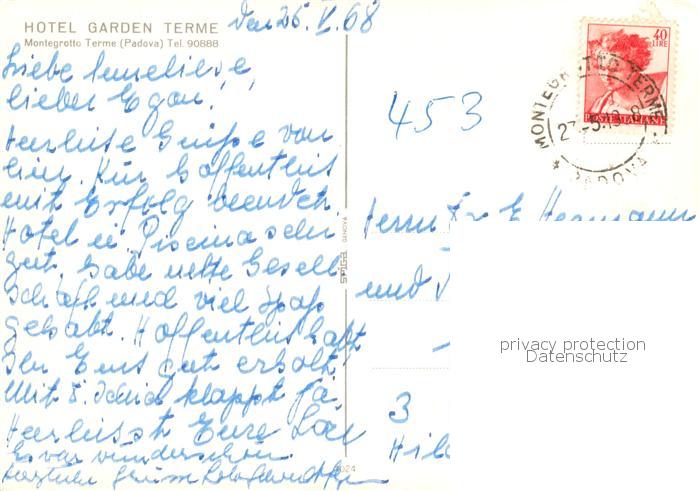 HOTEL GARDEN TERME
Montegrotto Terme (Padova) Tel. 90888
Den 26. V. 68
Liebe Anneliese,
lieber Egon!
Herzliche Grüße von
hier. Kur hoffentlich
mit Erfolg beendet.
Hotel u. Piscina sehr
gut. Habe nette Gesell
schaft und viel Spaß
gehabt. Hoffentlich habt
Ihr Euch gut erholt
Mit klappt ja
Herzlichst Eure
Es war wunderschön
Herzliche Grüße
SPIGA GENOVA
453
40
LIRE
POSTE ITALIANE
MONTEGROTTO TERME
* PADOVA *
Herrn Dr E Hermann
und
3
Hil
privacy protection
Datenschutz